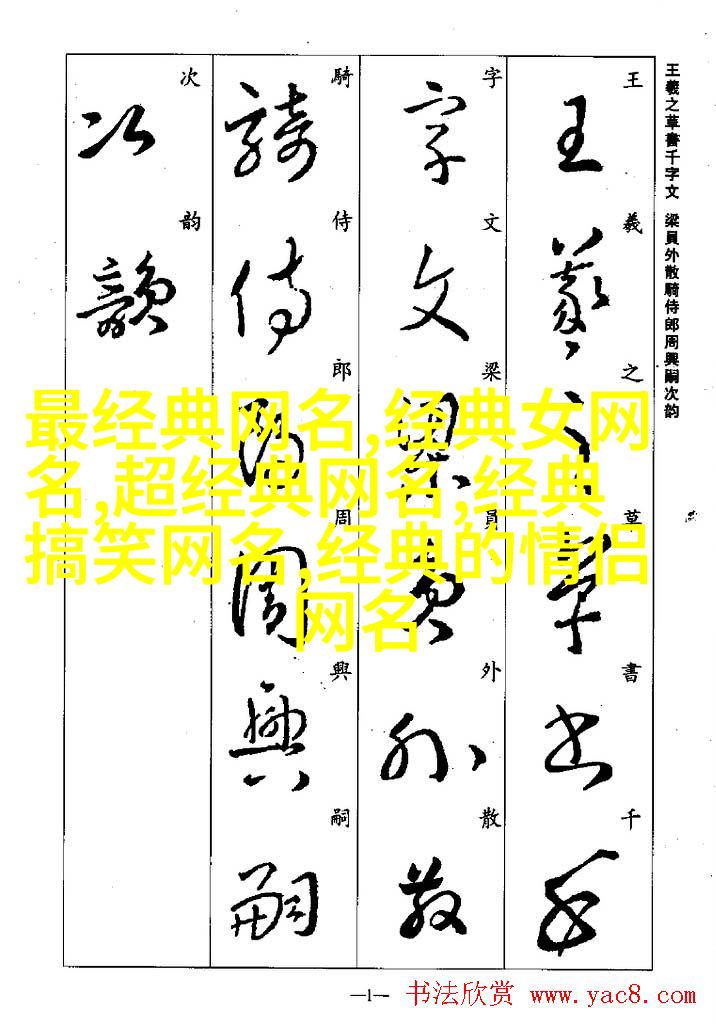 王羲之草書千字文 梁員外散騎侍郎周興嗣次韵
王羲之草書千
王羲之草書千
字文梁員外散
字文梁員外散
騎侍郎周興嗣
騎侍郎周興嗣
次韵
次韻
最经典网名,经典女网
名,超经典网名,经典
搞笑网名,经典的情侣
网名
—1—
书法欣赏 www.yac8.com